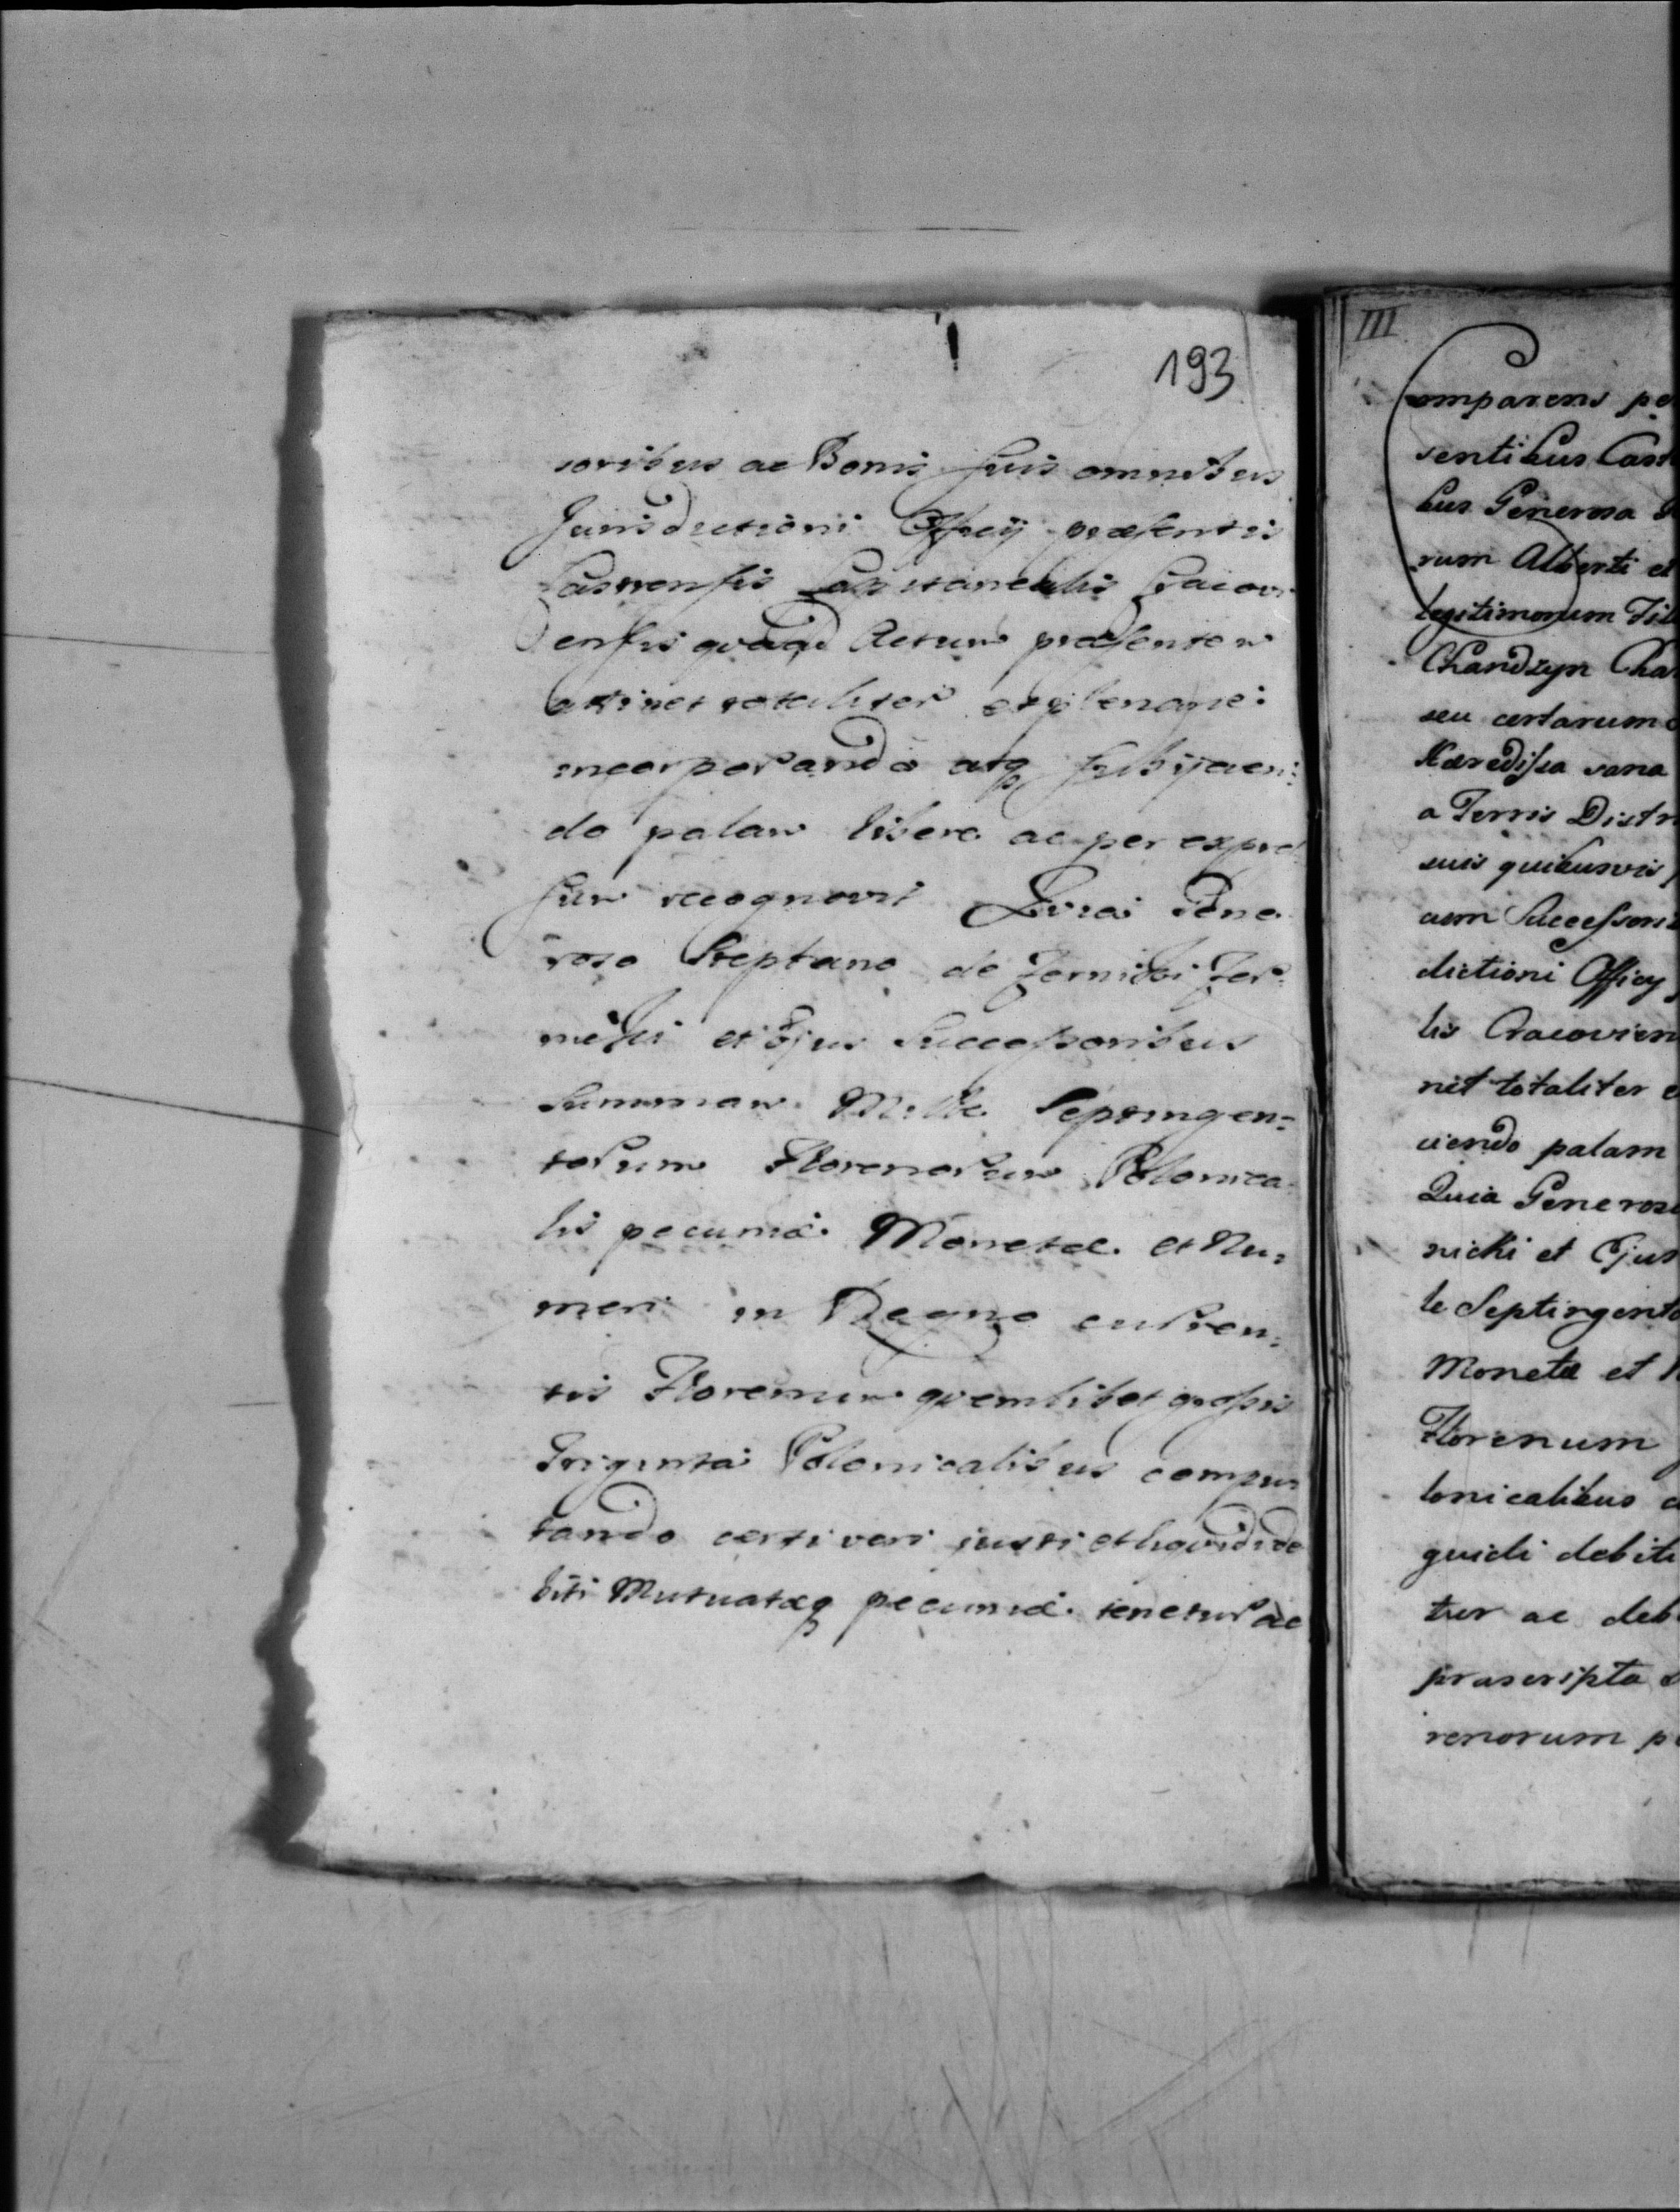 193
soribus ac Bonis suis omnibus
Jurisdictioni Officij præsentis
Castrensis Capitanealis Cracovi
ensis quoad Actum præsentem
attinet totaliter et plenarie:
incorporando atq subijcien:
do palam libere ac per expres
sum recognovit Quia Gene
roso Stephano de
et Ejus Successoribus
Summam Mille Septingen=
torum Florenorum Polonica
lis pecuniæ Monetæ et Nu=
meri in Regno curren=
tis Florenum quemlibet grossis
Triginta Polonicalibus compu
tando certi veri justi et liquidi de
biti Mutuatæq pecuniæ tenetur ac
III
Comparens pe
sentibus Cast
bus Generosa
rum Alberti et
legitimorum Fil
Chandzyn Cha
seu certarum
Hæredissa sana
a Terris Distr
suis quibusvis
cum Successori
dictioni Officy
lis Cracovien
net totaliter e
ciendo palam
Quia Generos
nicki et Ejus
le Septingento
Monetæ et
Florenum
lonicalibus c
quidi debiti
tur ac deb
præscripta
renorum p